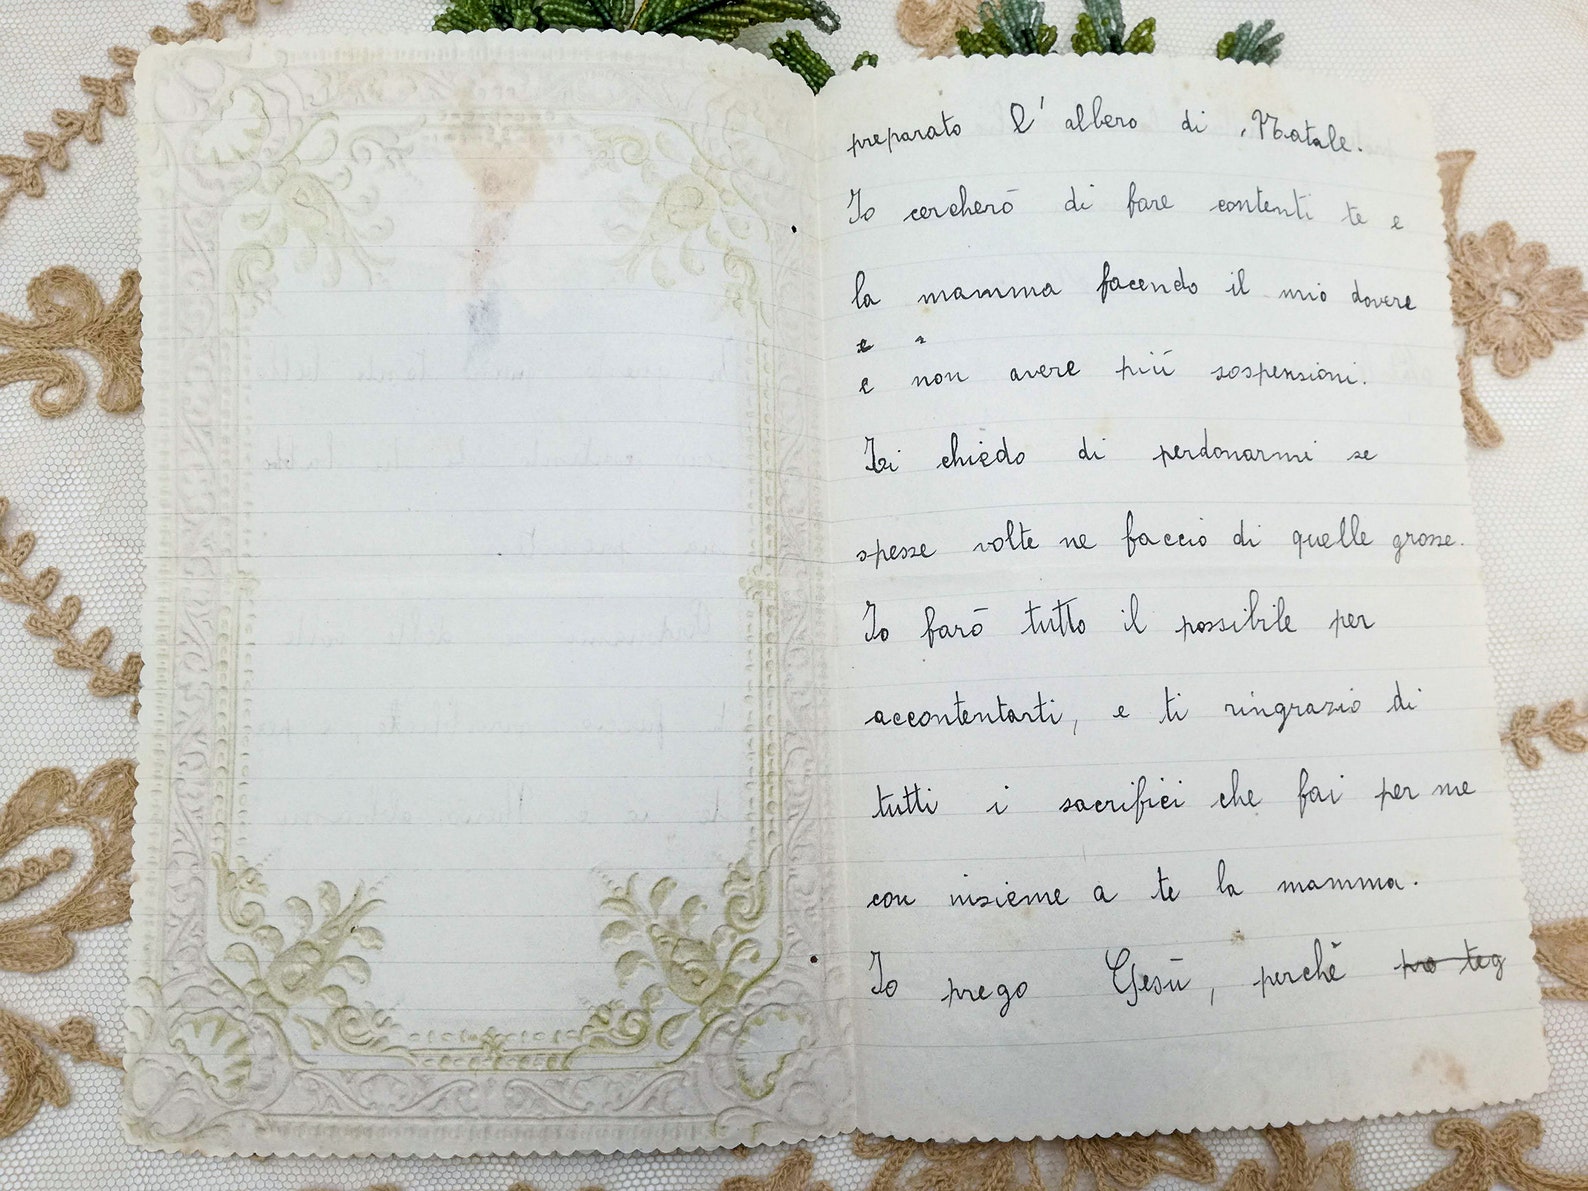 preparato l'albero di Natale.
Io cercherò di fare contenti te e
la mamma facendo il mio dovere
e
e non avere più sospensioni.
Ti chiedo di perdonarmi se
spesse volte ne faccio di quelle grosse.
Io farò tutto il possibile per
accontentarti, e ti ringrazio di
tutti i sacrifici che fai per me
con insieme a te la mamma.
Io prego Gesù, perchè pro teg